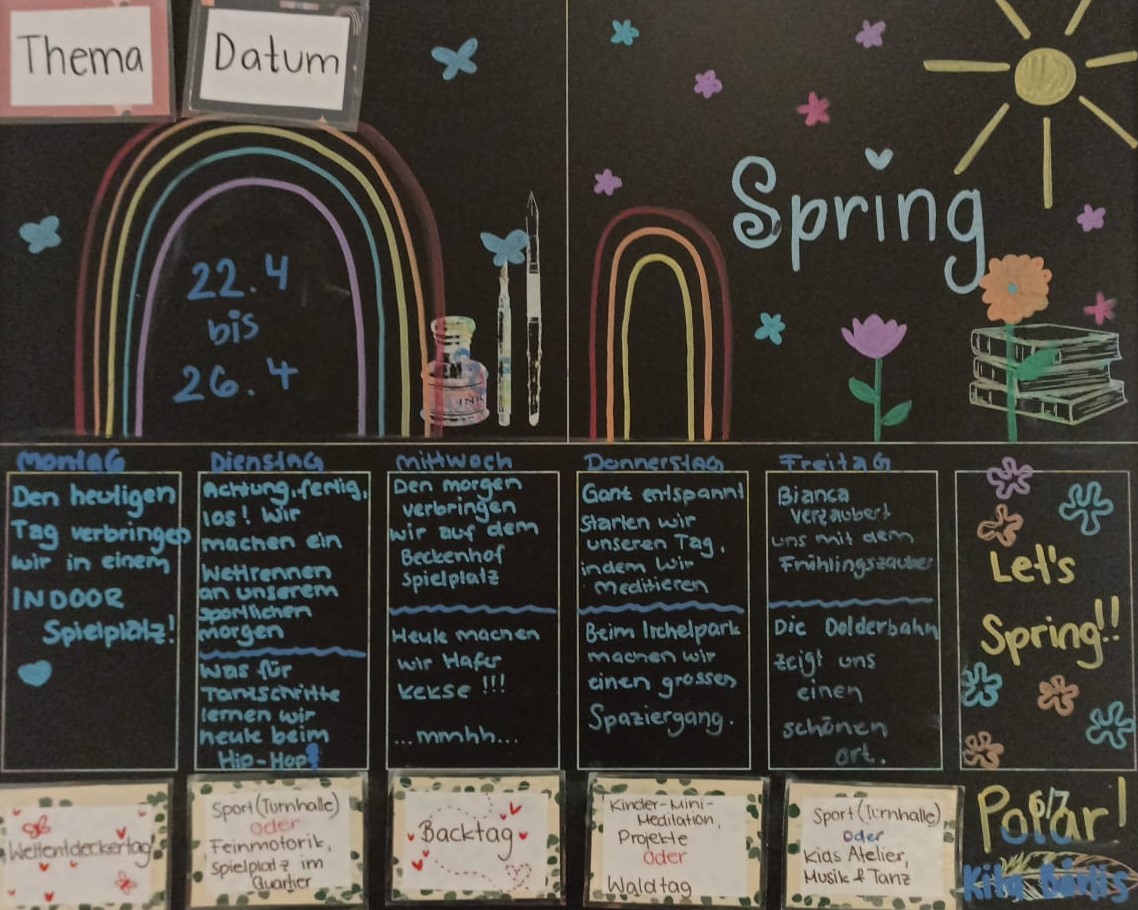 Thema
Datum
22.4
bis
26.4
INK
Spring
Montag
Den heutigen
Tag verbringen
wir in einem
INDOOR
Spielplatz!
Dienstag
Achtung, fertig,
los! Wir
machen ein
Wettrennen
an unserem
sportlichen
morgen
Was für
Tanzschritte
lernen wir
heute beim
Hip-Hop?
Mittwoch
Den morgen
verbringen
wir auf dem
Beckenhof
Spielplatz
Heute machen
wir Hafer
kekse!!!
...mmhh...
Donnerstag
Ganz entspannt
starten wir
unseren Tag,
indem wir
meditieren
Beim Irchelpark
machen wir
einen grossen
Spaziergang.
Freitag
Bianca
verzaubert
uns mit dem
Frühlingszauber
Die Dolderbahn
zeigt uns
einen
schönen
ort.
Let's
Spring!!
Weltentdeckertag
Sport (Turnhalle)
oder
Feinmotorik,
Spielplatz im
Quartier
Backtag
Kinder-Mini-
Meditation,
Projekte
oder
Waldtag
Sport (Turnhalle)
oder
Kids Atelier,
Musik & Tanz
6/7
Kita